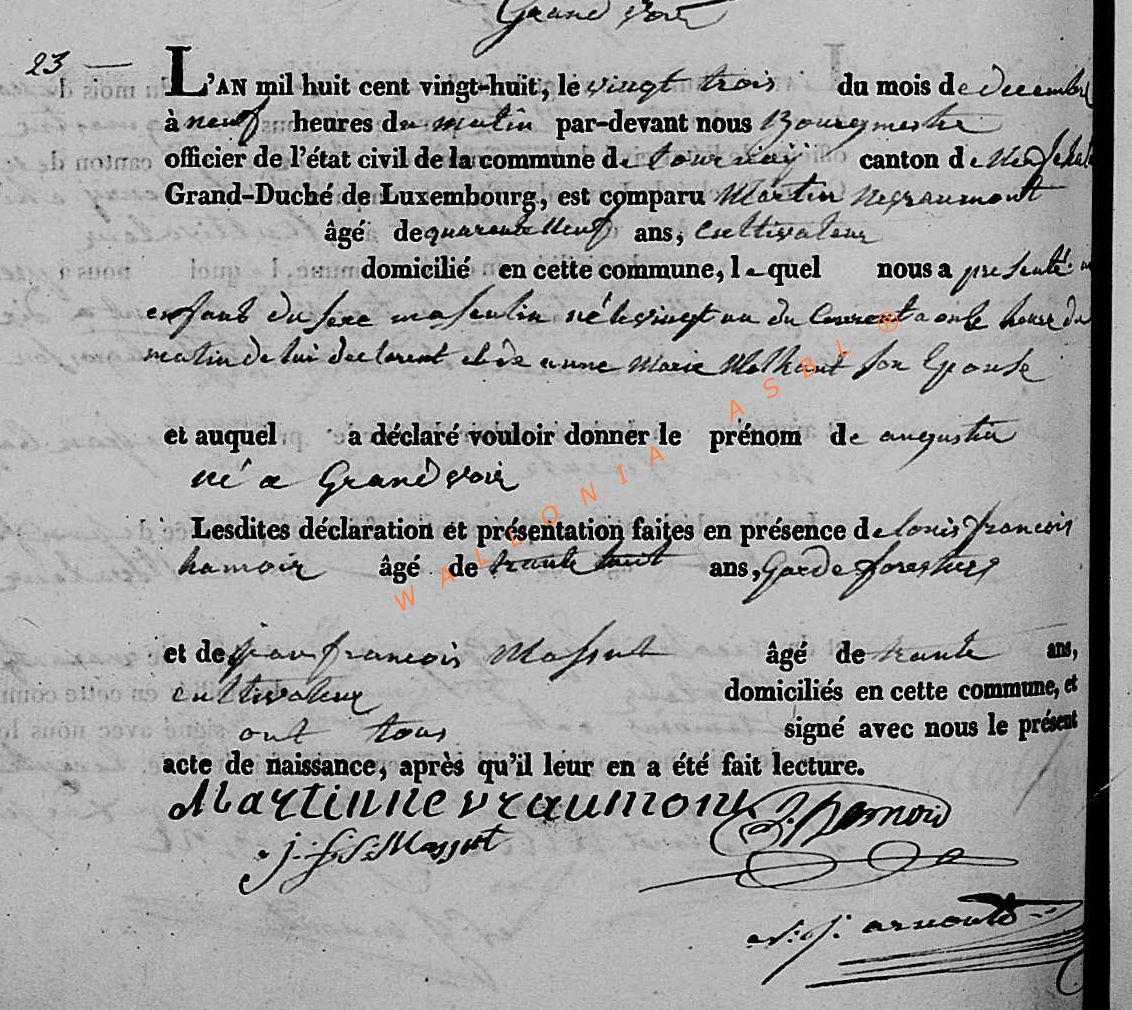 Grand voir
23 —
L'AN mil huit cent vingt-huit, le vingt trois du mois de decembre
à neuf heures du matin par-devant nous Bourgmestre
officier de l'état civil de la commune de tournay canton de
Grand-Duché de Luxembourg, est comparu Martin Negraumont
âgé de quarente Neuf ans, Cultivateur
domicilié en cette commune, lequel nous a presenté un
enfant du sexe masculin né le vingt un du Courent a onze heure du
matin de lui declarent et de anne Marie son Epouse
et auquel a déclaré vouloir donner le prénom de augustin
né a Grand voir
Lesdites déclaration et présentation faites en présence de louis francois
hamoir âgé de trante huit ans, Garde forestier
et de jean francois Massut âgé de trante ans,
cultivateur domiciliés en cette commune, et
ont tous signé avec nous le présent
acte de naissance, après qu'il leur en a été fait lecture.
Martin Nevraumont
j: f: Massut
arnould
WALLONIA ASBL ®